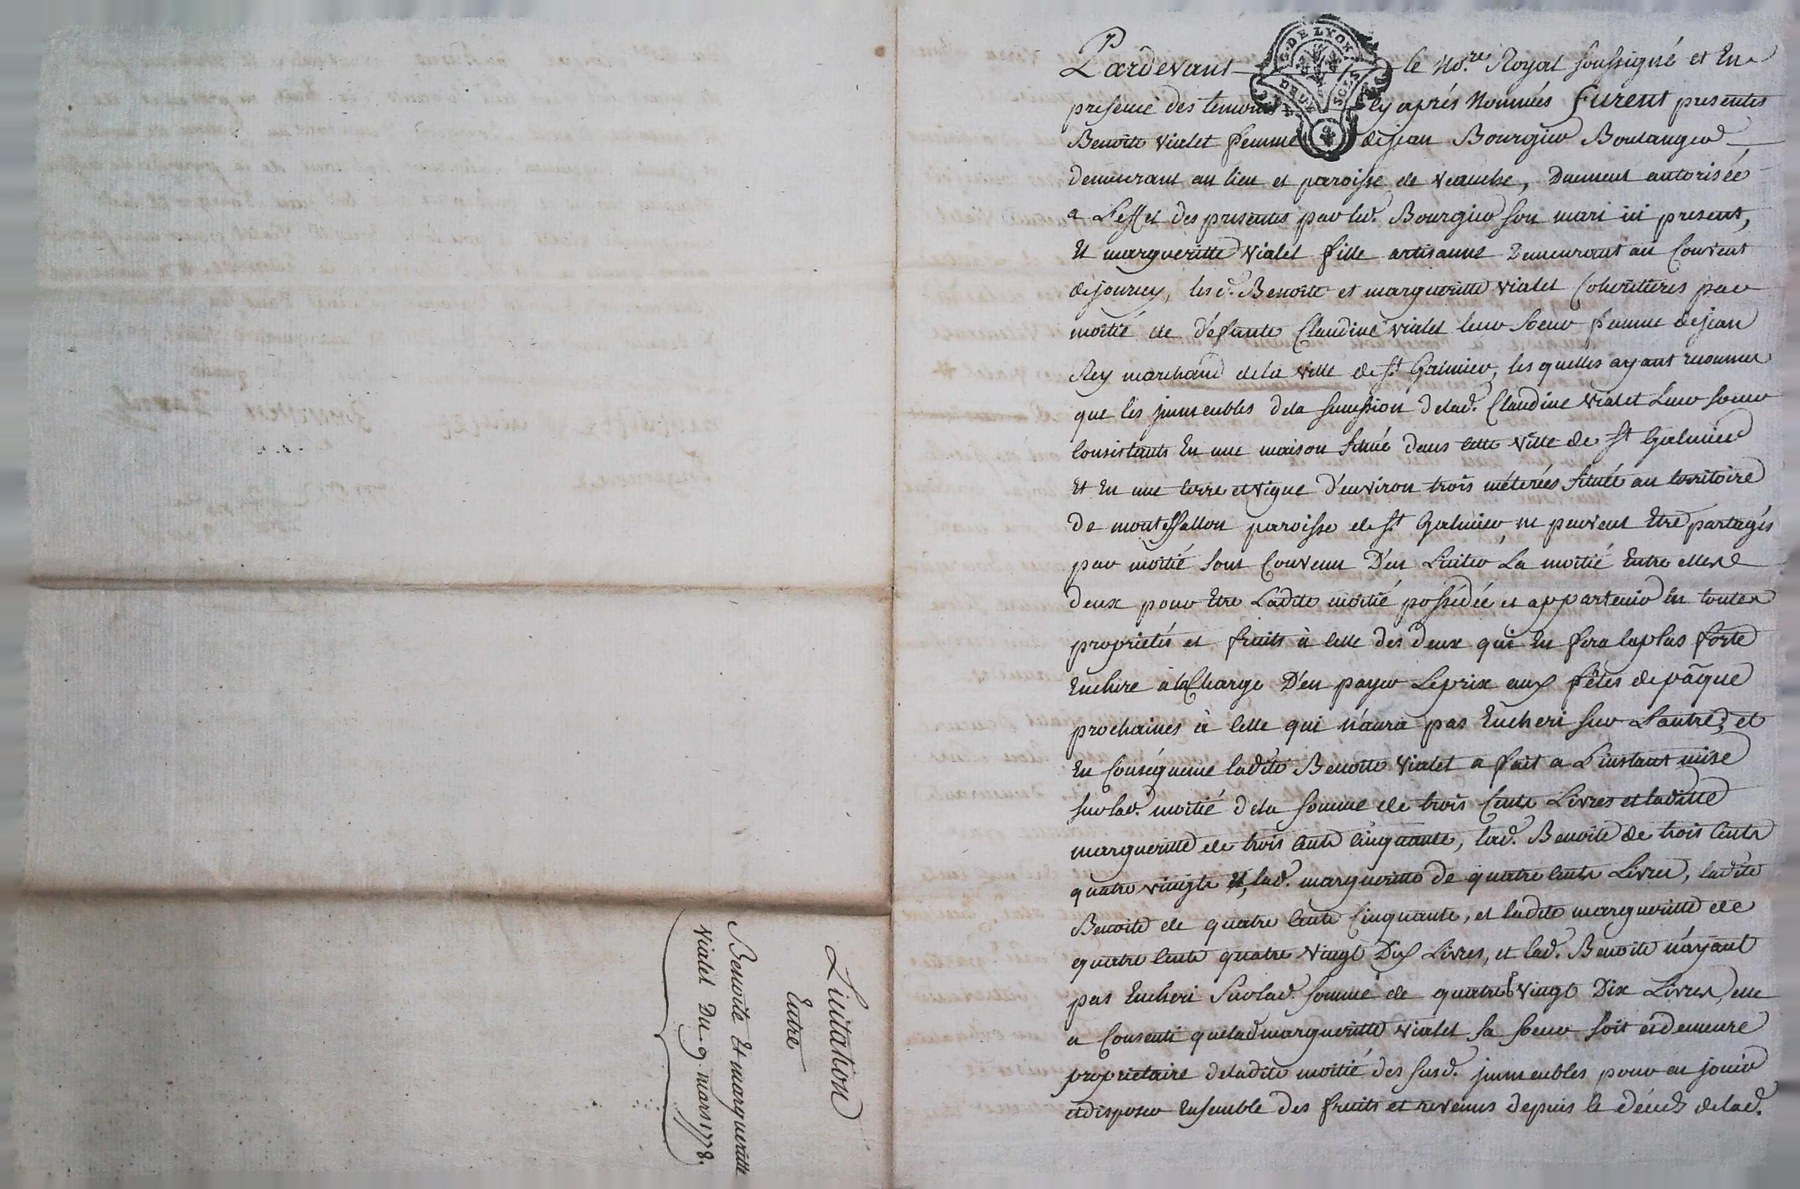 Licitation
Entre
Benoite Et margueritte
Vialet Du 9. mars 1778.
G. DE LYON
DEUX SOLS
Pardevant le No.re Royal soussigné et En
presence des temoins cy après Nommés furent presentes
Benoite Vialet femme de jean Bourgier Boulanger
demeurant au lieu et paroisse de veauche, Duement autorisée
a L'effet des presentes par led. Bourgier son mari ici present,
Et margueritte Vialet fille artisanne Demeurant au Couvent
de jourcey, lesd. Benoite et margueritte vialet Coheritieres par
moitié de défunte Claudine vialet leur soeur femme de jean
Rey marchand de la ville de St Galmier, les quelles ayant reconnu
que les jmmeubles de la succession de lad. Claudine vialet Leur soeur
Consistants En une maison située dans cette ville de St Galmier
Et En une terre et vigne d'environ trois méterées située au territoire
de paroisse de St Galmier ne peuvent Etre partagés
par moitié sont Convenu D'en Liciter La moitié Entre elles
deux pour Etre Ladite moitié possédée et appartenir En toutes
propriétés et fruits à celle des deux qui En fera la plus forte
Enchere à la Charge D'en payer Le prix aux fêtes de pâque
prochaines à celle qui n'aura pas Encheri sur L'autre, et
En Conséquence ladite Benoite Vialet a fait a L'instant mise
sur lad. moitié de la somme de trois Cents Livres et ladite
margueritte de trois Cents Cinquante, lad. Benoite de trois Cents
quatre vingts lad. margueritte de quatre Cents Livres, ladite
Benoite de quatre Cents Cinquante, et ladite margueritte de
quatre Cents quatre Vingt Dix Livres, et lad. Benoite n'ayant
pas Encheri sur lad. somme de quatre Vingt Dix Livres, elle
a Consenti que lad margueritte Vialet sa soeur soit et demeure
proprietaire de ladite moitié des susd. jmmeubles pour en jouir
et disposer Ensemble des fruits et revenus depuis le décés de lad.